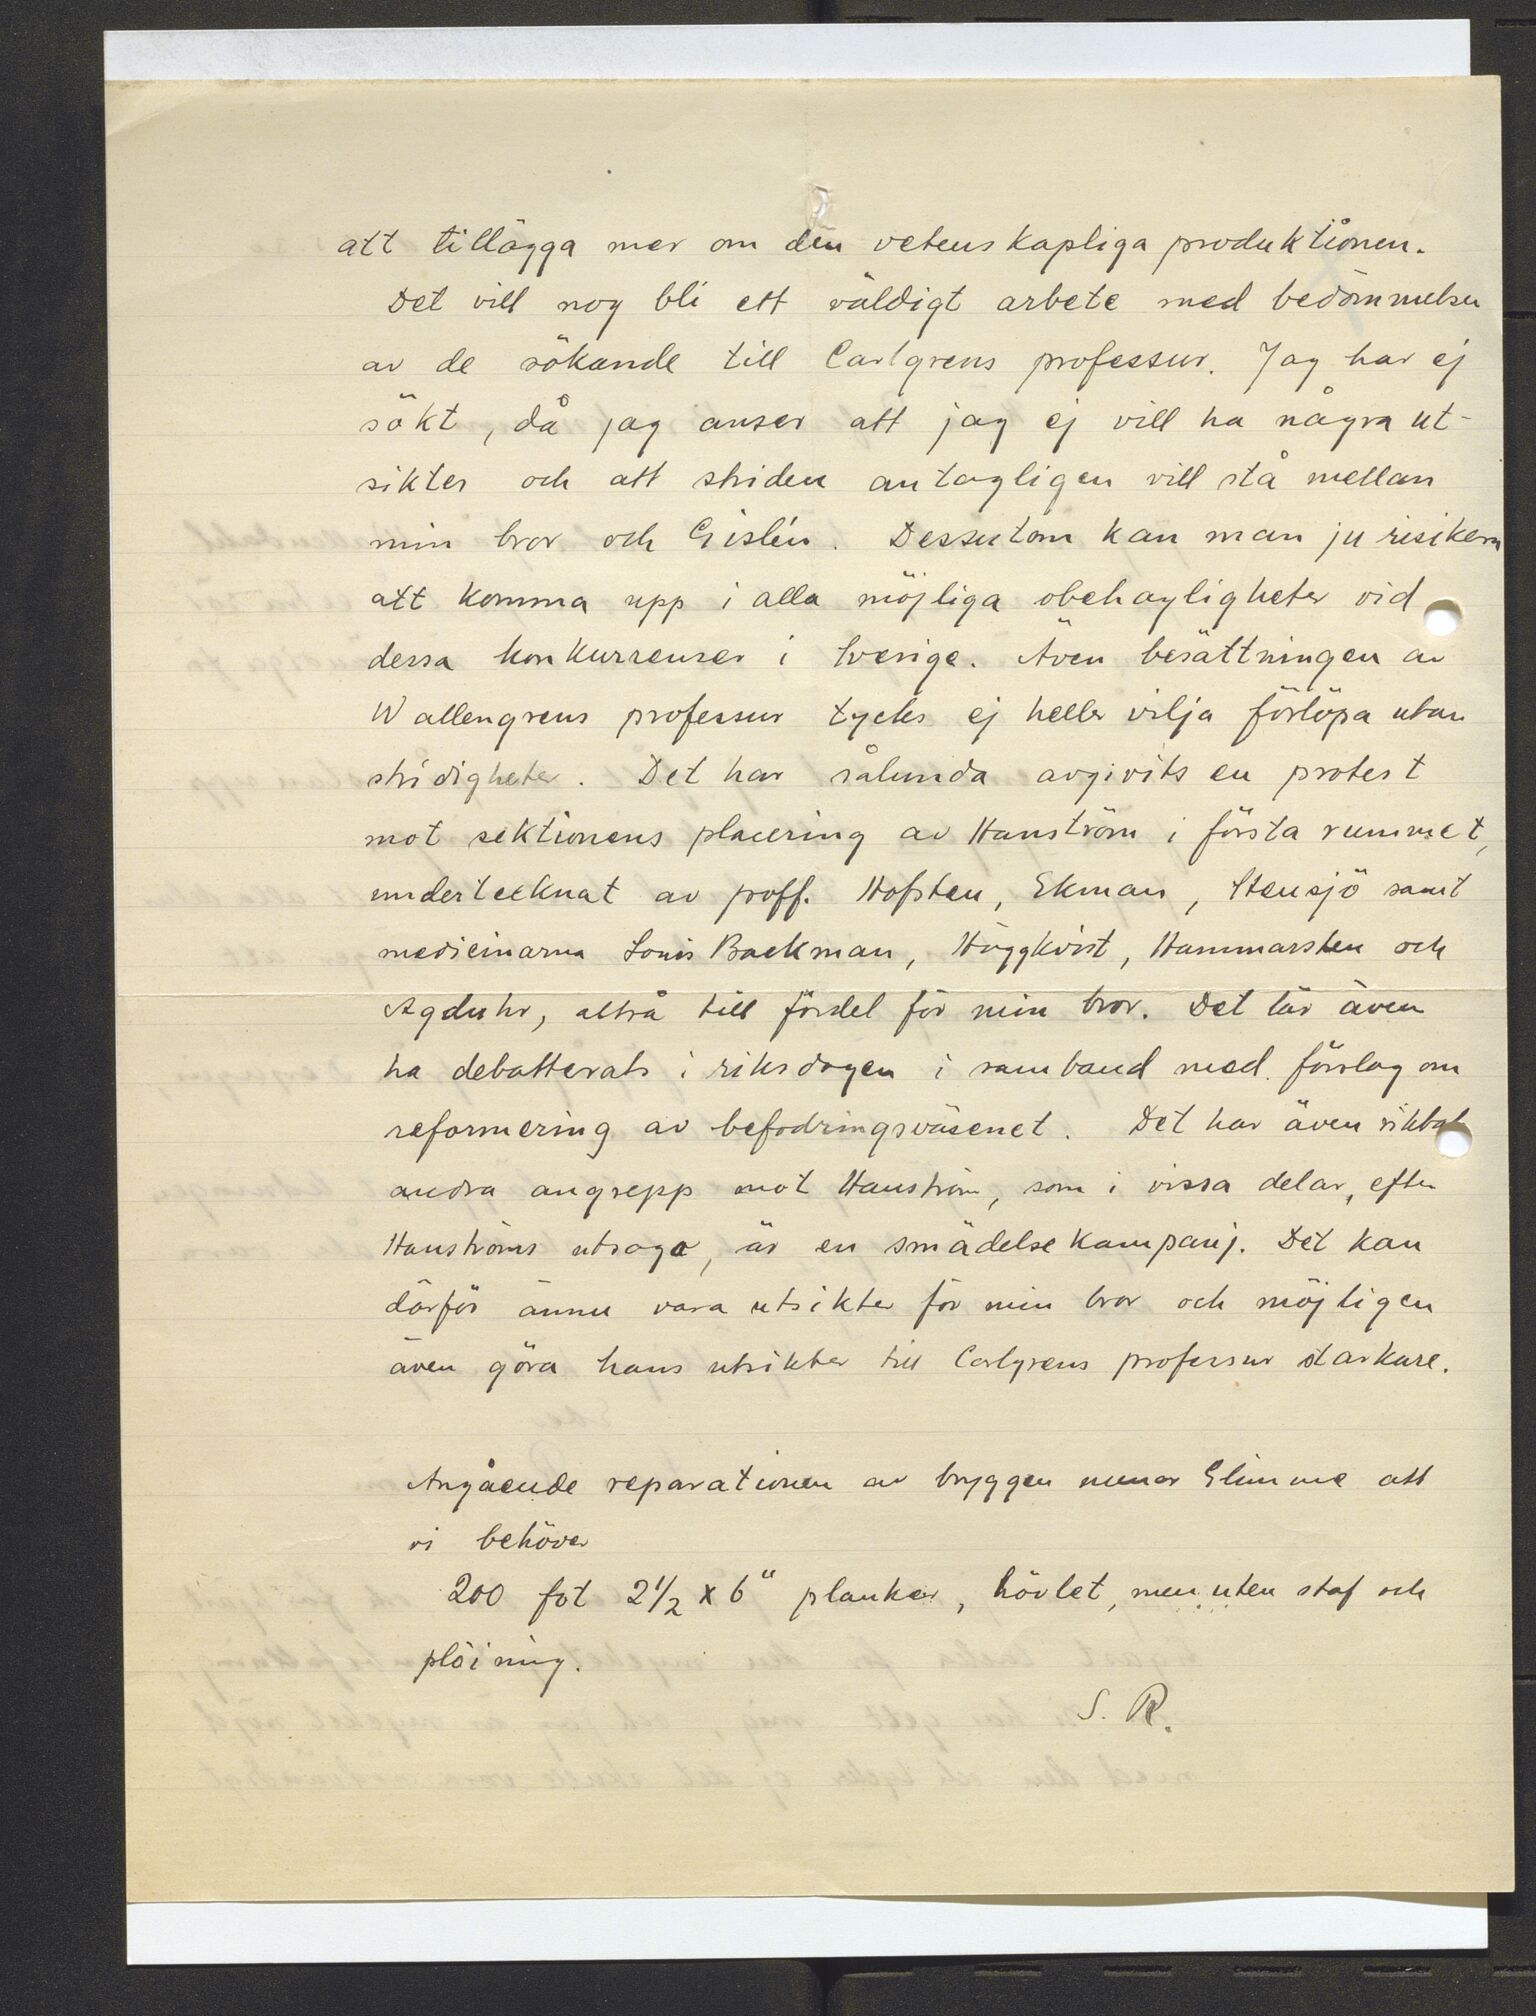 att tillägga mer om den vetenskapliga produktionen.
Det vill nog bli ett väldigt arbete med bedömmelsen
av de sökande till Carlgrens professur. Jag har ej
sökt, då jag anser att jag ej vill ha några ut-
sikter och att striden antagligen vill stå mellan
min bror och Gislén. Dessutom kan man ju risikera
att komma upp i alla möjliga obehagligheter vid
dessa konkurrenser i Sverige. Även besättningen av
Wallengrens professur tycks ej heller vilja förlöpa utan
stridigheter. Det har sålunda avgivits en protest
mot sektionens placering av Hanström i första rummet,
undertecknat av proff. Hofsten, Ekman, Stensjö samt
medicinarna Louis Backman, Häggkvist, Hammarsten och
Agduhr, alltså till fördel för min bror. Det lär även
ha debatterats i riksdagen i samband med förslag om
reformering av befodringsväsenet. Det har även riktats
andra angrepp mot Hanström, som i vissa delar, efter
Hanströms utsago, är en smädelsekampanj. Det kan
därför ännu vara utsikter för min bror och möjligen
även göra hans utsikter till Carlgrens professur starkare.
Angående reparationen av bryggen menar Glimme att
vi behöver
200 fot 2 1/2 x 6" plankor, hövlet, men uten staf och
plöining.
S. R.